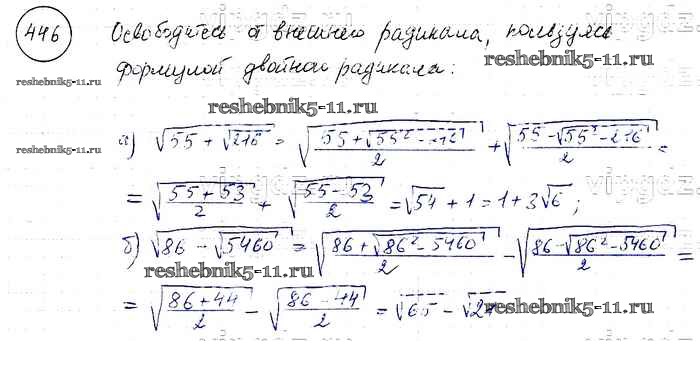 446 Освободитесь от внешнего радикала, пользуясь
формулой двойного радикала:
reshebnik5-11.ru
reshebnik5-11.ru
reshebnik5-11.ru
а) √(55 + √216) = √((55 + √(55² - 216))/2) + √((55 - √(55² - 216))/2) =
reshebnik5-11.ru
= √((55 + 53)/2) + √((55 - 53)/2) = √54 + 1 = 1 + 3√6;
б) √(86 - √5460) = √((86 + √(86² - 5460))/2) - √((86 - √(86² - 5460))/2) =
reshebnik5-11.ru
= √((86 + 44)/2) - √((86 - 44)/2) = √65 - √21
reshebnik5-11.ru